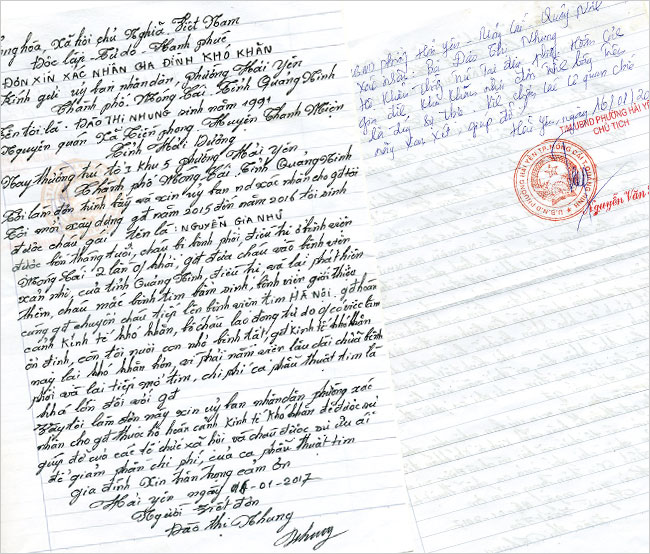 Cộng hòa, Xã hội chủ Nghĩa, Việt Nam
Độc lập - Tự do - Hạnh phúc
ĐƠN XIN XAC NHÂN GIA ĐÌNH KHÓ KHĂN
Kính gửi uỷ ban nhân dân, phường Hải Yên
Thành phố Móng Cái - Tỉnh Quảng Ninh
Tên tôi là: ĐÀO THỊ NHUNG sinh năm 1991
Nguyên quán xã Tiền phong, Huyện Thanh Miện
Tỉnh Hải Dương
Nay thường trú tổ 3 khu 5 phường Hải Yên
Thành phố Móng Cái, Tỉnh Quảng Ninh
Tôi làm đơn trình bày và xin uỷ ban nd xác nhân cho gđ tôi
Tôi mới xây dựng gđ năm 2015 đến năm 2016 tôi sinh
được cháu gái. Tên là: NGUYỄN GIA NHƯ
được bốn tháng tuổi, cháu bị bệnh phổi, điều trị ở bệnh viện
Móng Cái 2 lần k khỏi, gđ đưa cháu vào bệnh viện
sản nhi, của tỉnh Quảng Ninh, điều trị, và lại phát hiện
thêm, cháu mắc bệnh tim bẩm sinh, bệnh viện giới thiệu
cùng gđ chuyển cháu tiếp lên bệnh viện tim HÀ NỘI. gđ hoàn
cảnh kinh tế khó khăn, bố cháu lao động tự do k có việc làm
ổn định, còn tôi nuôi con nhỏ bệnh tật, gđ kinh tế khó khăn
nay lại khó khăn hơn, vì phải nằm viện lâu dài chữa bệnh
phổi và lại tiếp mổ tim, chi phí ca phẫu thuật tim là
khá lớn đối với gđ
Vậy tôi làm đơn này xin uỷ ban nhân dân phường xác
nhân cho gđ thuộc hộ hoàn cảnh kinh tế khó khăn để được sự
giúp đỡ của các tổ chức xã hội và cháu được sự ưu ái
để giảm phần chi phí, của ca phẫu thuật tim
gia đình xin trân trọng cảm ơn
Hải yên ngày -01-2017
Người viết đơn
Đào thị Nhung
Nhung
UBND phường Hải Yên - Móng Cái - Quảng Ninh
Xác nhận: Bà Đào Thị Nhung
Hộ khẩu thường trú tại địa phương. Hoàn cảnh
gia đình khó khăn
là đúng sự thật.
này xem xét, giúp đỡ
Hải Yên, ngày 16/01/20
TM.UBND PHƯỜNG HẢI YÊN
CHỦ TỊCH
U.B.N.D PHƯỜNG HẢI YÊN TP.MÓNG CÁI T.QUẢNG NINH
Nguyễn Văn